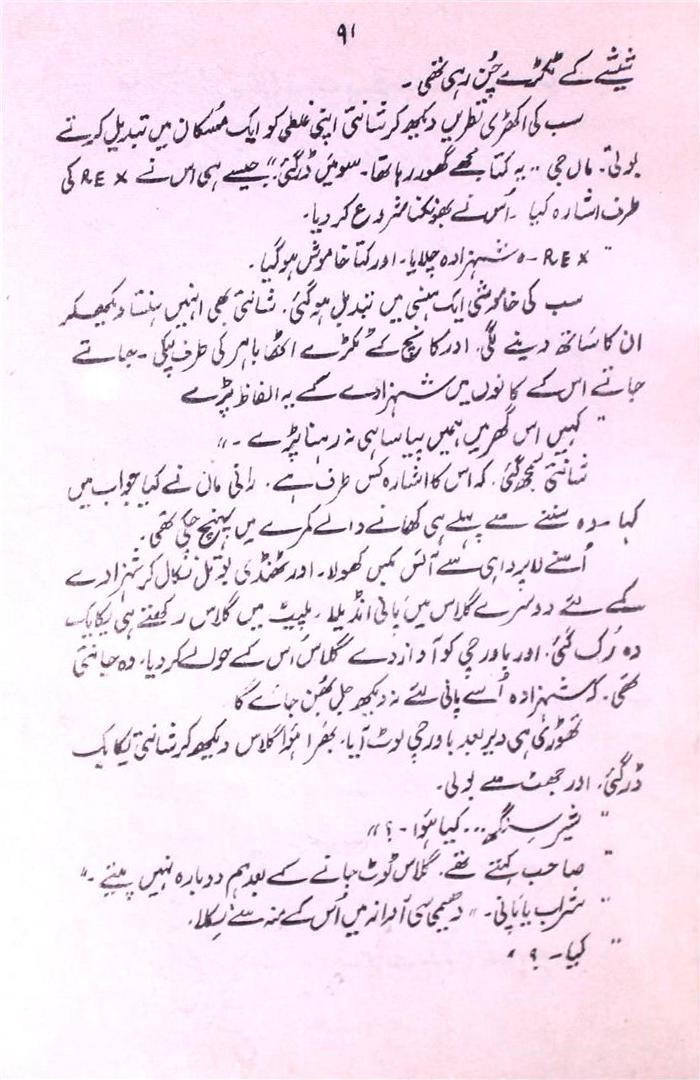 ۹۱
شیشے کے ٹکڑے چُن رہی تھی ۔
سب کی اکھڑی نظریں دیکھ کر شانتی اپنی غلطی کو ایک مُسکان میں تبدیل کرتے
بولی۔ ماں جی ،، یہ کُتا مجھے گھور رہا تھا۔ سو میں ڈر گئی" جیسے ہی اس نے REX کی
طرف اشارہ کیا ۔ اُس نے بھونکنا شروع کر دیا۔
" REX ۔ " شہزادہ چلایا۔ اور کتا خاموش ہو گیا ۔
سب کی خاموشی ایک ہنسی میں تبدیل ہو گئی۔ شانتی بھی انہیں ہنستا دیکھ کر
ان کا ساتھ دینے لگی۔ اور کانچ کے ٹکڑے اٹھا باہر کی طرف لپکی ۔ جاتے
جاتے اس کے کانوں میں شہزادے کے یہ الفاظ پڑے
" کہیں اس گھر میں ہمیں پیاسا ہی نہ رہنا پڑے ۔ "
شانتی سمجھ گئی۔ کہ اس کا اشارہ کس طرف ہے ۔ رانی ماں نے کیا جواب میں
کہا ۔ وہ سننے سے پہلے ہی کھانے والے کمرے میں پہنچ چکی تھی۔
اُسنے لاپرواہی سے آئس بکس کھولا۔ اور ٹھنڈی بوتل نکال کر شہزادے
کے لئے دوسرے گلاس میں پانی انڈیلا ۔ پلیٹ میں گلاس رکھتے ہی یکایک
وہ رُک گئی۔ اور باورچی کو آواز دے گلاس اُس کے حوالے کر دیا۔ وہ جانتی
تھی۔ کہ شہزادہ اُسے پانی لئے نہ دیکھ جل بھُن جائے گا
تھوڑی ہی دیر بعد باورچی لوٹ آیا۔ بھرا ہُوا گلاس دیکھ کر شانتی یکایک
ڈر گئی۔ اور جھٹ سے بولی۔
" شیر سنگھ ... کیا ہُوا ۔ ؟ "
" صاحب کہتے تھے۔ گلاس ٹوٹ جانے کے بعد ہم دوبارہ نہیں پیتے ۔ "
" شراب یا پانی ۔ " دھیمی سی آواز میں اُس کے منہ سے نکلا۔
" کیا ۔ ؟ "